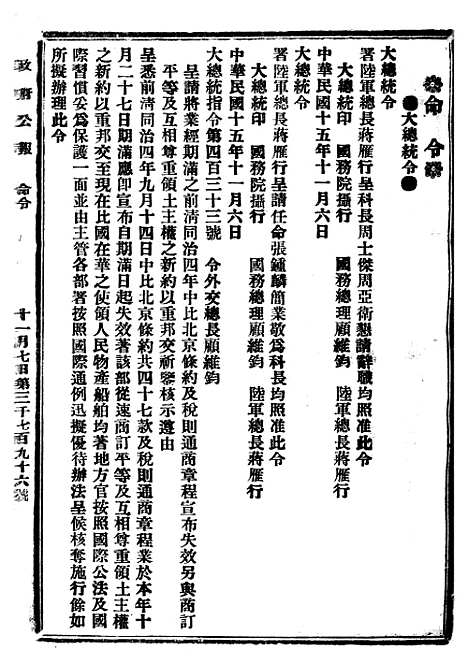 命令
大總統令
大總統令
署陸軍總長蔣雁行呈科長周士傑周亞衛懇請辭職均照准此令
大總統印　國務院攝行　國務總理顧維鈞　陸軍總長蔣雁行
中華民國十五年十一月六日
大總統令
署陸軍總長蔣雁行呈請任命張鍾麟簡業敬爲科長均照准此令
大總統印　國務院攝行　國務總理顧維鈞　陸軍總長蔣雁行
中華民國十五年十一月六日
大總統指令第四百三十三號　令外交總長顧維鈞
呈請將業經期滿之前清同治四年中比北京條約及稅則通商章程宣布失效另與商訂
平等及互相尊重領土主權之新約以重邦交祈鑒核示遵由
呈悉前清同治四年九月十四日中比北京條約共四十七款及稅則通商章程業於本年十
月二十七日期滿應卽宣布自期滿日起失效著該部從速商訂平等及互相尊重領土主權
之新約以重邦交至現在比國在華之使領人民物產船舶均著地方官按照國際公法及國
際習慣妥爲保護一面並由主管各部署按照國際通例迅擬優待辦法呈候核奪施行餘如
所擬辦理此令
政府公報　命令　十一月七日第三千七百九十六號